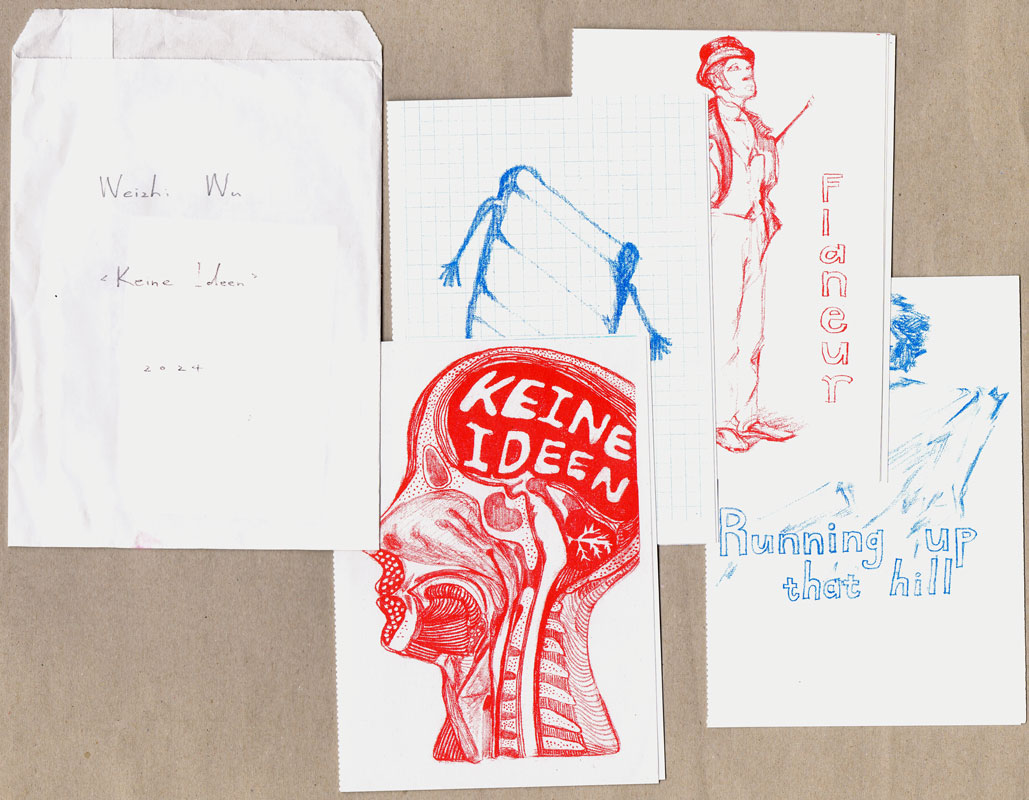 Weizhi Wu
"Keine Ideen"
2024
KEINE
IDEEN
Flaneur
Running up
that hill